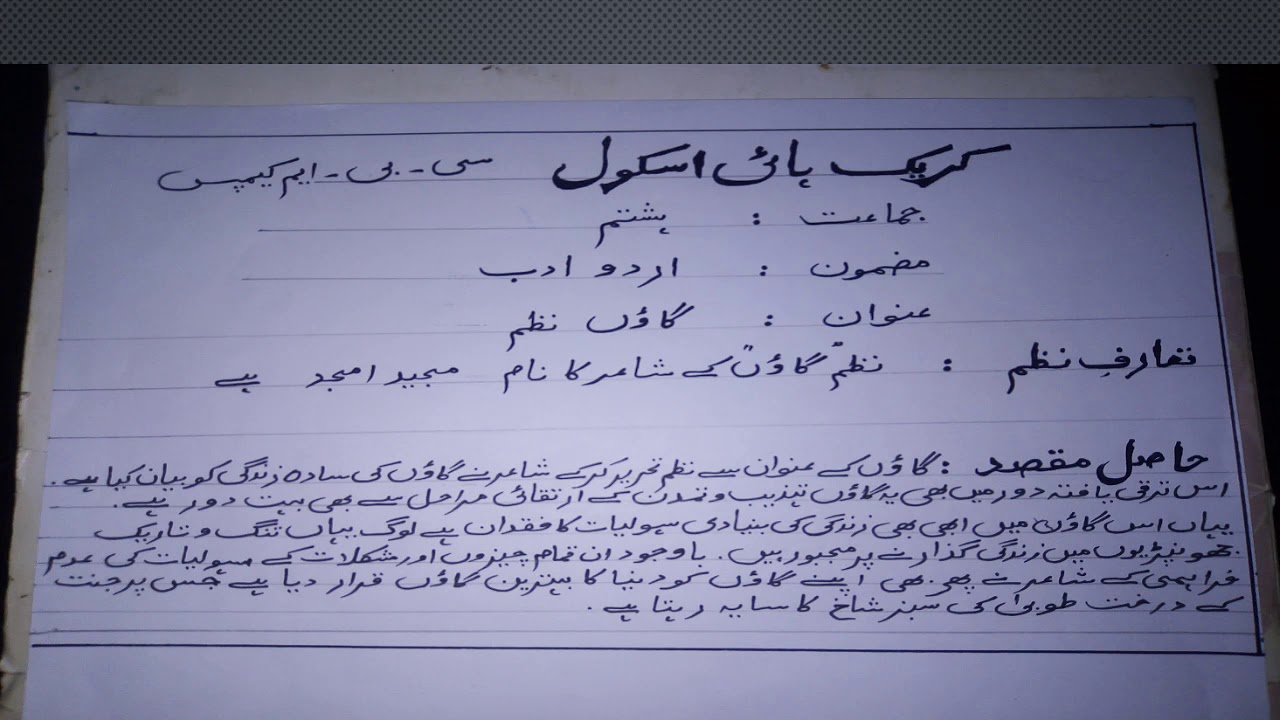 کریک ہائی اسکول سی - بی - ایم کیمپس
جماعت : ہشتم
مضمون : اردو ادب
عنوان : گاؤں نظم
تعارفِ نظم : نظم "گاؤں" کے شاعر کا نام مجید امجد ہے
حاصل مقصد : گاؤں کے عنوان سے نظم تحریر کر کے شاعر نے گاؤں کی سادہ زندگی کو بیان کیا ہے .
اس ترقی یافتہ دور میں بھی یہ گاؤں تہذیب و تمدن کے ارتقائی مراحل سے بھی بہت دور ہے .
یہاں اس گاؤں میں ابھی بھی زندگی کی بنیادی سہولیات کا فقدان ہے لوگ یہاں تنگ و تاریک
جھونپڑیوں میں زندگی گذارنے پر مجبور ہیں . باوجود ان تمام چیزوں اور مشکلات کے سہولیات کی عدم
فراہمی کے شاعر نے پھر بھی اپنے گاؤں کو دنیا کا بہترین گاؤں قرار دیا ہے جس پر جنت
کے درخت طوبیٰ کی سبز شاخ کا سایہ رہتا ہے .